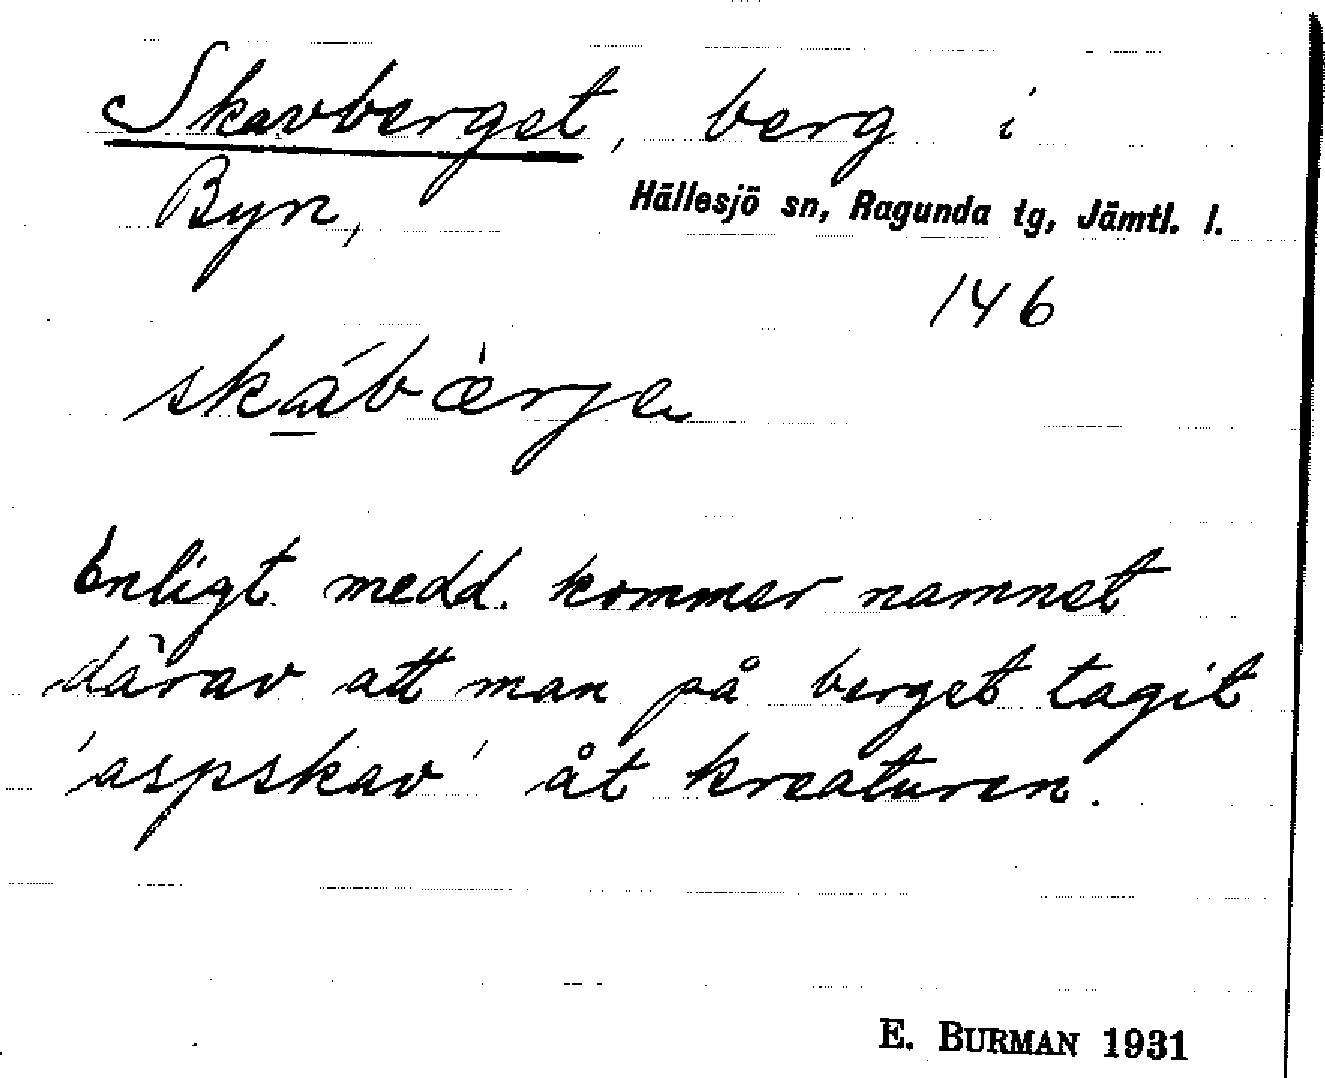 Skavberget, berg i
Byn, Hällesjö sn, Ragunda tg, Jämtl. l.
146
ská̲bæ̀rje
Enligt medd. kommer namnet
därav att man på berget tagit
'aspskav' åt kreaturen.
E. BURMAN 1931